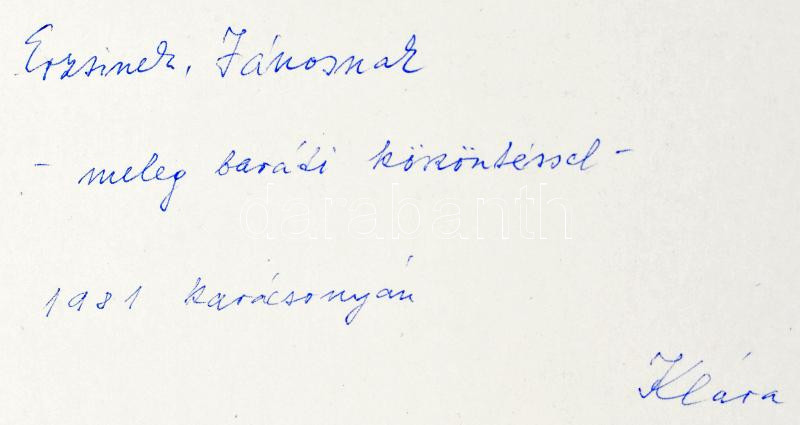 Erzsinek, Jánosnak
- meleg baráti köszöntéssel -
darabanth
1981 karácsonyán
Klára